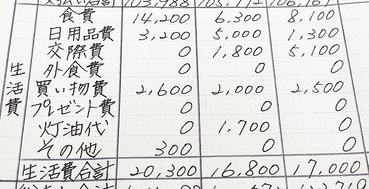 103,988 105,772 106,161
食費 14,200 6,300 8,100
日用品費 3,200 5,000 1,300
交際費 0 1,800 5,100
外食費 0 0 0
生活費 買い物費 2,600 2,000 2,500
プレゼント費 0 0 0
灯油代 0 1,700 0
その他 300 0 0
生活費合計 20,300 16,800 17,000